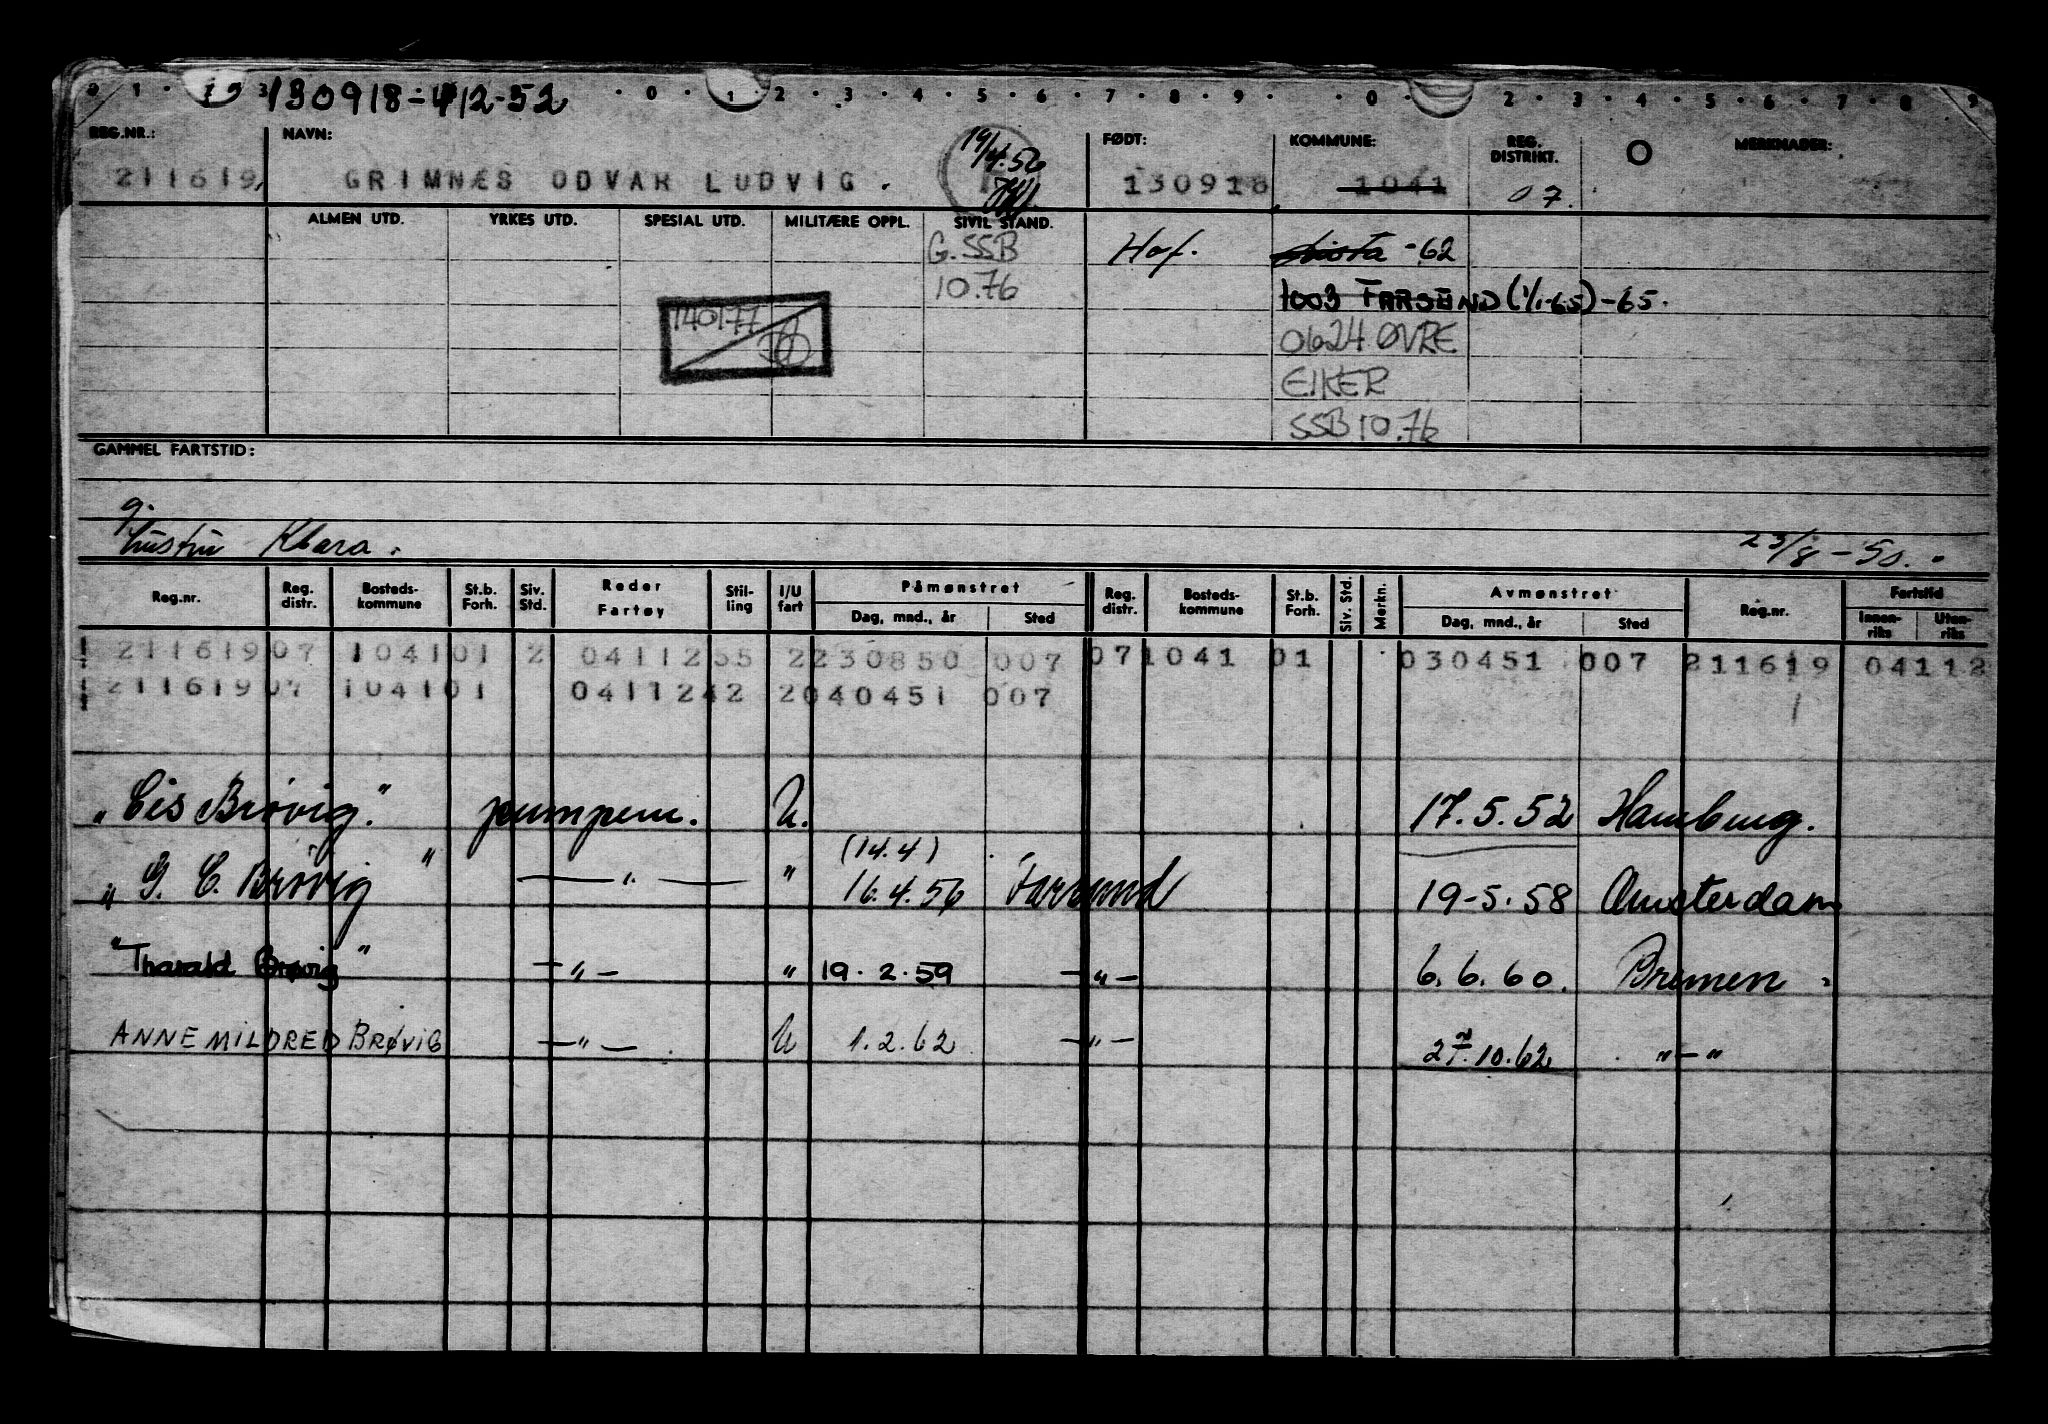 130918-412-52
REG.NR.: NAVN: FØDT: KOMMUNE: REG. DISTRIKT. O MERKNADER:
211619, GRIMNÆS ODVAR LUDVIG. 19/4.56 130918 1041 07.
ALMEN UTD. YRKES UTD. SPESIAL UTD. MILITÆRE OPPL. SIVIL STAND.
G.SSB Hof. Lista -62
10.76 1003 FARSUND (1/1-65) -65.
140177 0624 ØVRE
EIKER
SSB 10.76
GAMMEL FARTSTID:
g.
hustru Klara. 23/8-50.
Reg.nr. Reg. distr. Bosteds- kommune St.b. Forh. Siv. Std. Reder Fartøy Stil- ling I/U fart Påmønstret Dag, mnd., år Sted Reg. distr. Bosteds- kommune St.b. Forh. Siv. Std. Merkn. Avmønstret Dag, mnd., år Sted Reg.nr. Fartstid Innen- riks Uten- riks
211619 07 1041 01 2 0411255 2 230850 007 07 1041 01 030451 007 211619 04112
211619 07 1041 01 0411242 2 040451 007
"Cis Brøvig." pumpem. U. 17.5.52 Hamburg.
(14.4)
"G. C. Brøvig" — " — " 16.4.56 Farsund 19-5.58 Amsterdam
"Tharald Brøvig" — " — " 19.2.59 — " — 6.6.60. Bremen
ANNE MILDRED BRØVIG — " — U 1.2.62 — " — 27.10.62 " — "